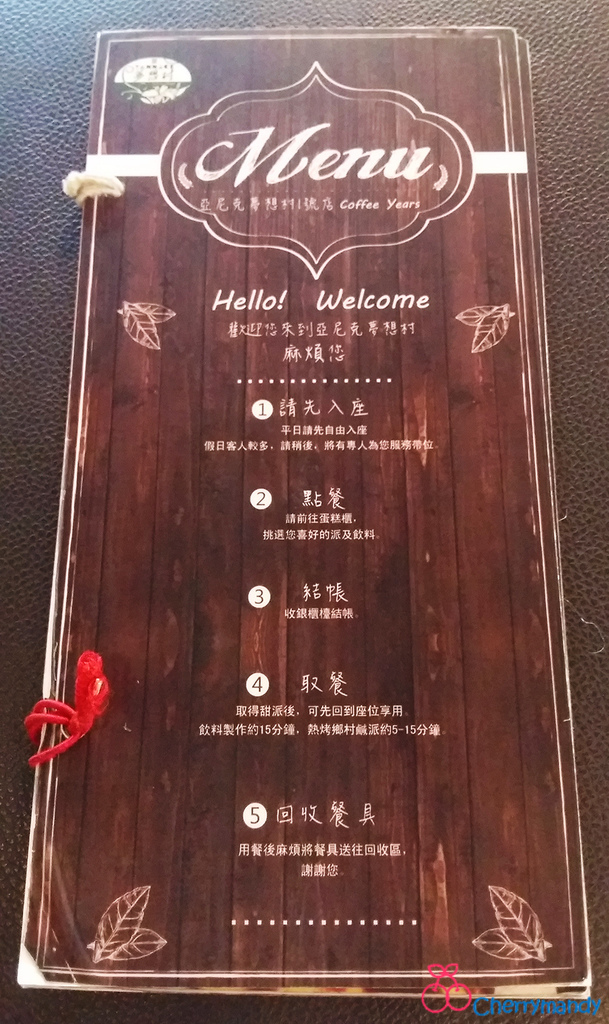 Menu
亞尼克夢想村1號店 Coffee Years
Hello! Welcome
歡迎您來到亞尼克夢想村
麻煩您
1 請先入座
平日請先自由入座
假日客人較多，請稍後，將有專人為您服務帶位。
2 點餐
請前往蛋糕櫃，
挑選您喜好的派及飲料。
3 結帳
收銀櫃檯結帳。
4 取餐
取得甜派後，可先回到座位享用。
飲料製作約15分鐘，熱烤鄉村鹹派約5-15分鐘。
5 回收餐具
用餐後麻煩將餐具送往回收區，
謝謝您。
Cherrymandy